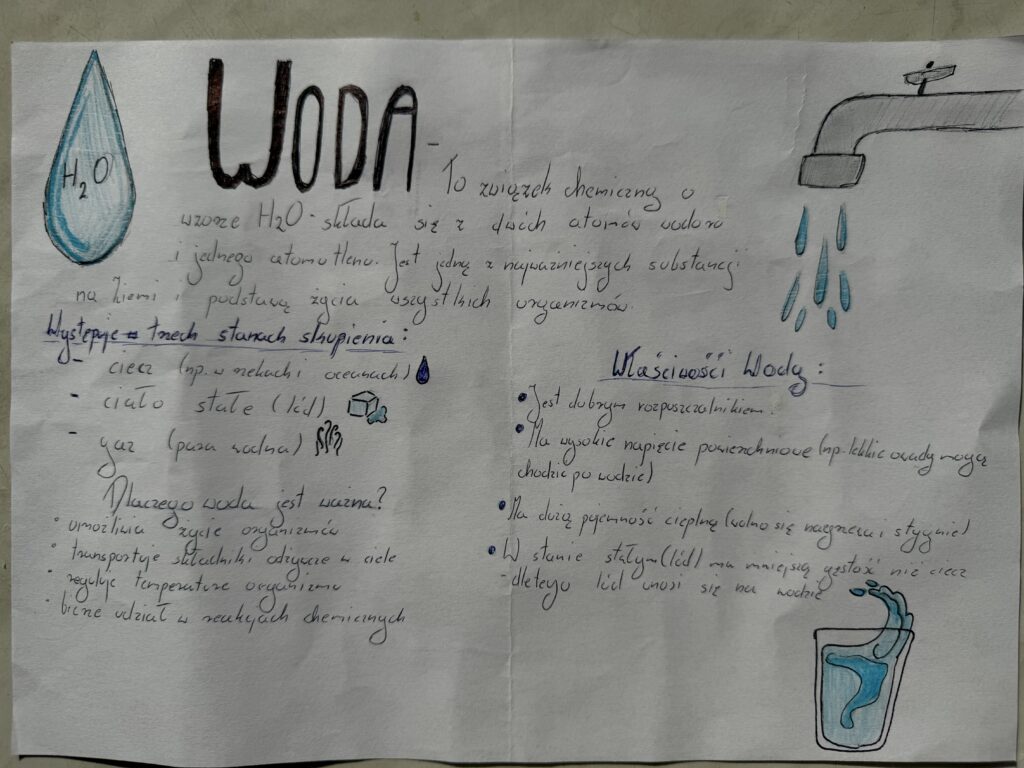 H2O
WODA -
To związek chemiczny o
wzorze H2O - składa się z dwóch atomów wodoru
i jednego atomu tlenu. Jest jedną z najważniejszych substancji
na Ziemi i podstawą życia wszystkich organizmów.
Występuje w trzech stanach skupienia:
- ciecz (np. w rzekach i oceanach)
- ciało stałe (lód)
- gaz (para wodna)
Dlaczego woda jest ważna?
• umożliwia życie organizmów
• transportuje składniki odżywcze w ciele
• reguluje temperature organizmu
• bierze udział w reakcjach chemicznych
Właściwości Wody:
• Jest dobrym rozpuszczalnikiem.
• Ma wysokie napięcie powierzchniowe (np. lekkie owady mogą
chodzić po wodzie)
• Ma dużą pojemność cieplną (wolno się nagrzewa i stygnie)
• W stanie stałym (lód) ma mniejszą gęstość niż ciecz
- dlatego lód unosi się na wodzie